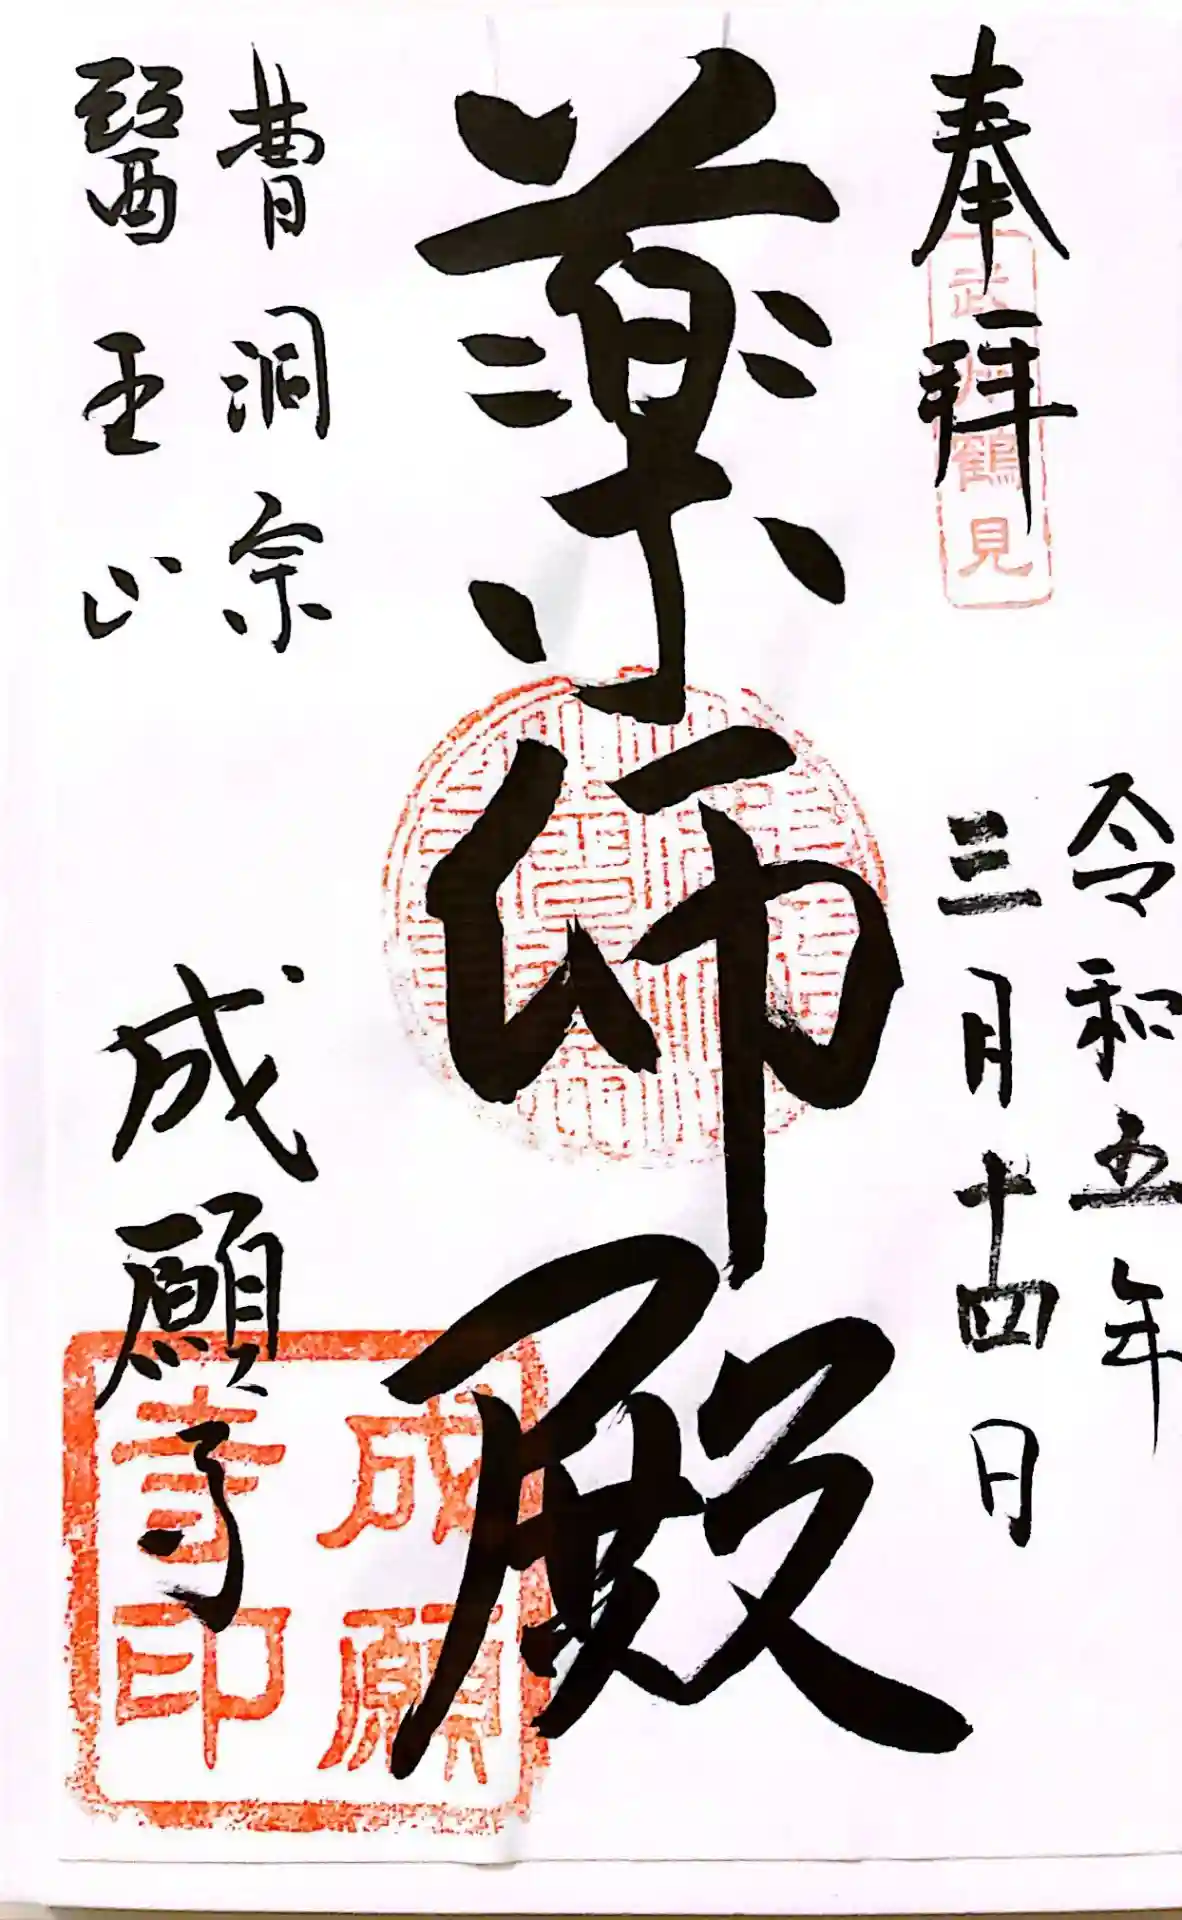 奉拝
武州鶴見
令和五年
三月十四日
薬師殿
曹洞宗
醫王山
成願寺
成願
寺印